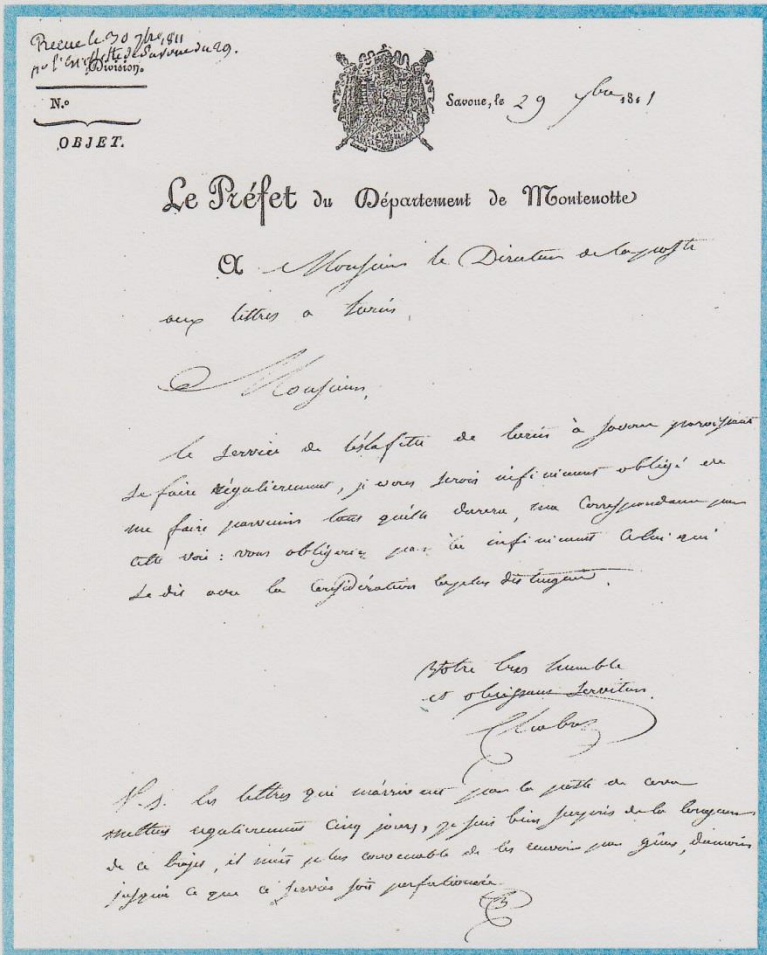 Recue le 30 7bre 1811
par l'estafette de Savone du 29.
Division.
N.º
OBJET.
Savone, le 29 7bre 1811
Le Préfet du Département de Montenotte
A Monsieur le Directeur de la poste
aux lettres a turin.
Monsieur,
le service de l'éstafette de turin à Savone paroissant
se faire régulierement, je vous serois infiniment obligé de
me faire parvenir tant qu'elle durera, ma correspondance par
cette voie : vous obligeriez par la infiniment celui qui
se dit avec la Considération la plus distinguée.
Votre tres humble
et obeissant serviteur.
Chabrol
N. S. les lettres qui m'arrivent par la poste de
mettent régulierement cinq jours, je suis bien surpris de la longueur
de ce trajet, il m'est plus convenable de les recevoir par gênes,
jusqu'à ce que ce service soit perfectionné.